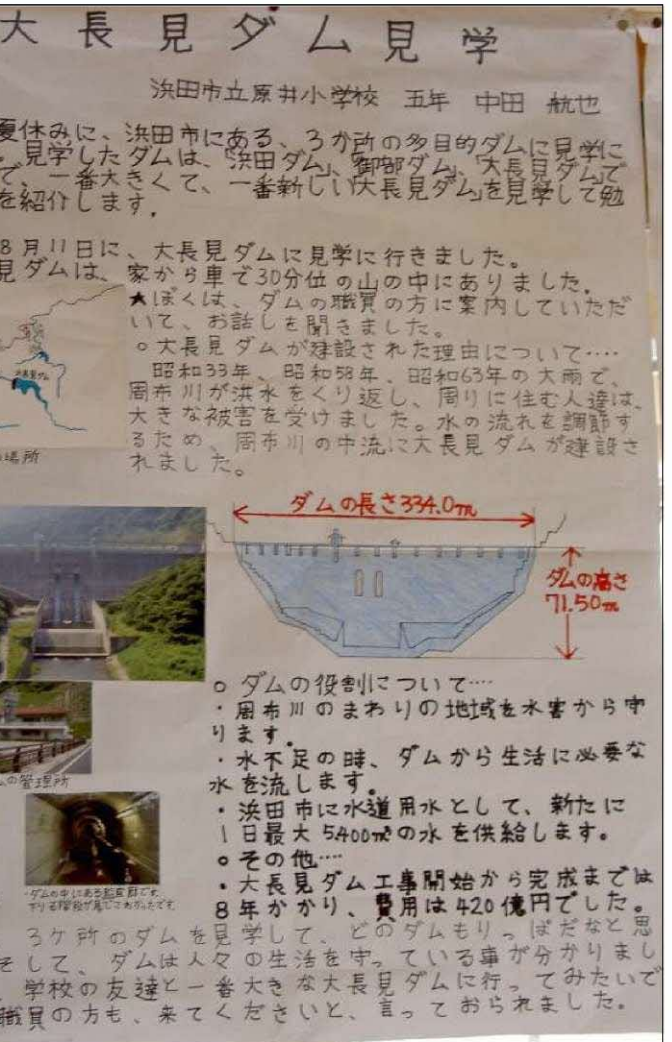 大長見ダム見学
浜田市立原井小学校 五年 中田 航也
夏休みに、浜田市にある、3か所の多目的ダムに見学に
。見学したダムは、「浜田ダム」、「御部ダム」、「大長見ダム」で
で、一番大きくて、一番新しい「大長見ダム」を見学して勉
を紹介します。
8月11日に、大長見ダムに見学に行きました。
見ダムは、家から車で30分位の山の中にありました。
★ぼくは、ダムの職員の方に案内していただ
いて、お話しを聞きました。
○大長見ダムが建設された理由について‥‥
昭和33年、昭和58年、昭和63年の大雨で、
周布川が洪水をくり返し、周りに住む人達は、
大きな被害を受けました。水の流れを調節す
るため、周布川の中流に大長見ダムが建設さ
れました。
大長見ダム
場所
ダムの長さ334.0m
ダムの高さ
71.50m
○ダムの役割について‥‥
・周布川のまわりの地域を水害から守
ります。
・水不足の時、ダムから生活に必要な
水を流します。
・浜田市に水道用水として、新たに
1日最大5400㎥の水を供給します。
○その他‥‥
・大長見ダム工事開始から完成までは
8年かかり、費用は420億円でした。
ムの管理所
・ダムの中にある監査廊です。
3ケ所のダムを見学して、どのダムもりっぱだなと思
そして、ダムは人々の生活を守っている事が分かりまし
学校の友達と一番大きな大長見ダムに行ってみたいで
職員の方も、来てくださいと、言っておられました。